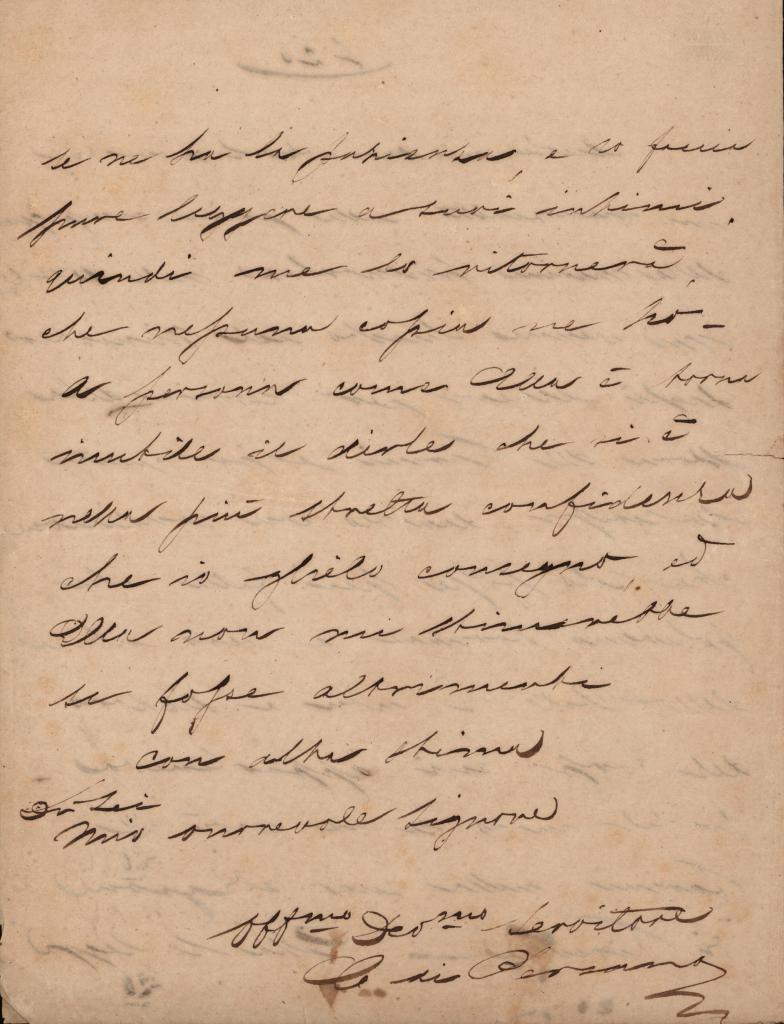 se ne ha la pazienza, e lo faccia
pure leggere a suoi intimi,
quindi me lo ritornerà,
che nessuna copia ne ho –
A persona come Ella è torna
inutile il dirle che si è
nella più stretta confidenza
che io glielo consegno, ed
Ella non mi stimerebbe
se fosse altrimenti
con alta stima
Di Lei
Mio onorevole Signore
Obbmo Devmo Servitore
C di Persano